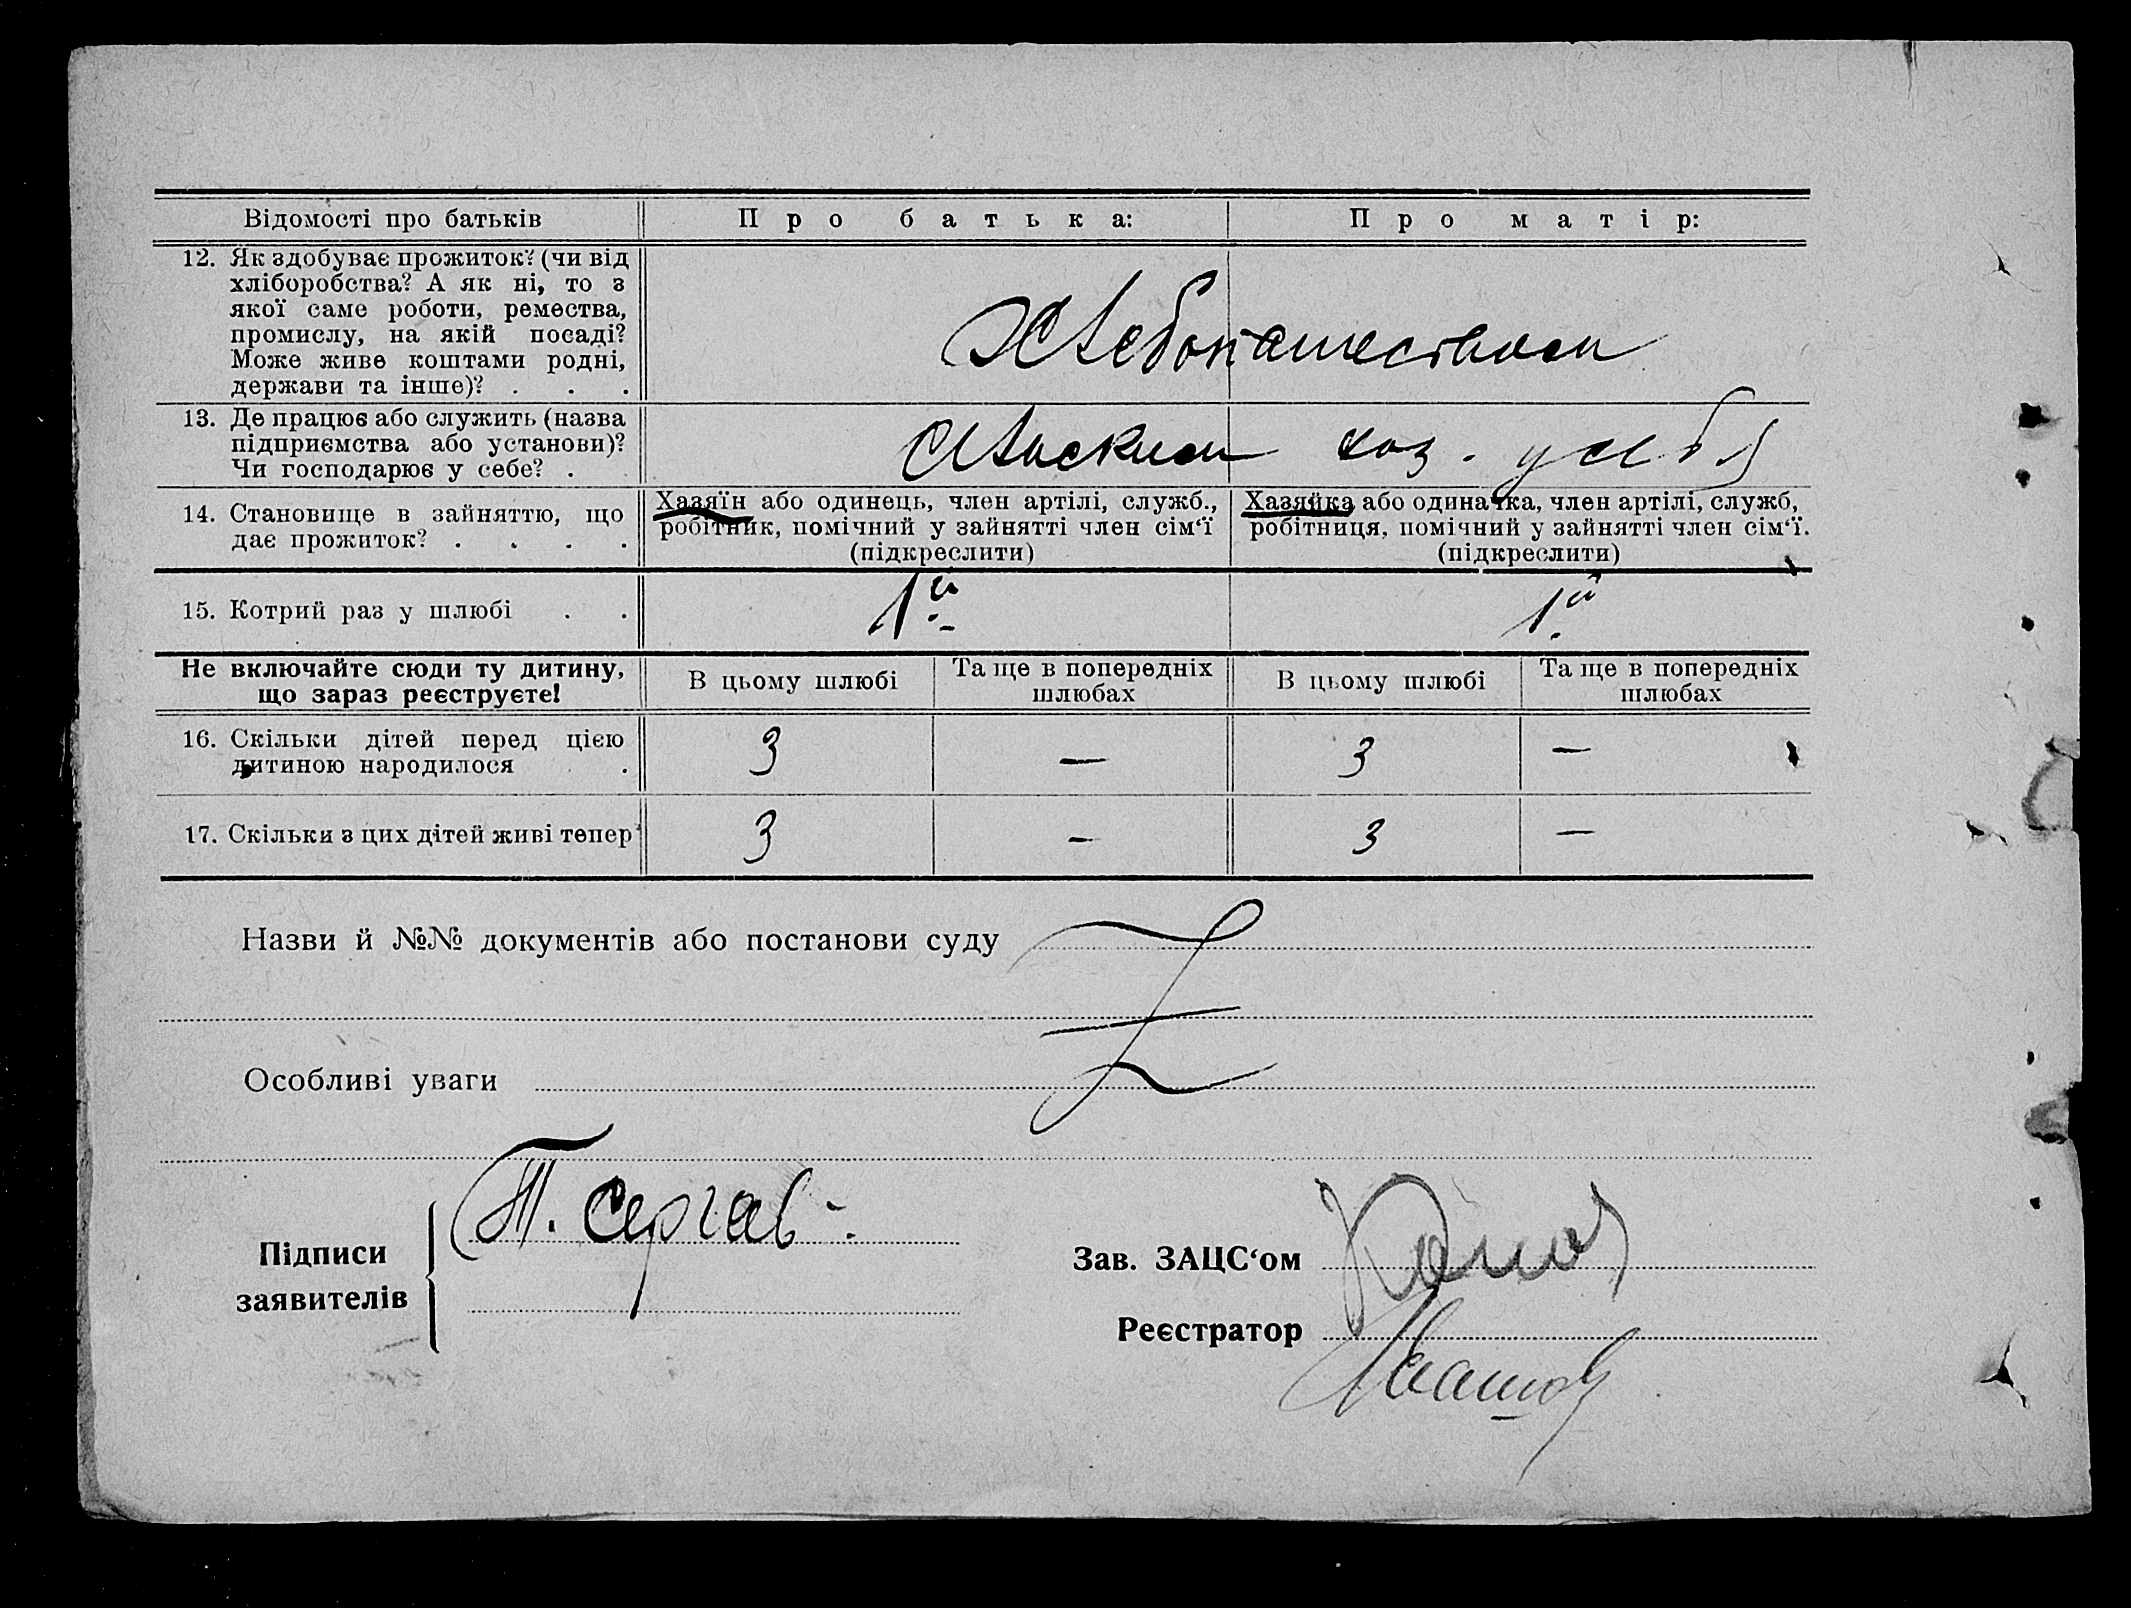 Відомості про батьків
Про батька:
Про матір:
12. Як здобуває прожиток? (чи від
хліборобства? А як ні, то з
якої саме роботи, ремества,
промислу, на якій посаді?
Може живе коштами родні,
держави та інше)? . . .
Хлебопашеством
13. Де працює або служить (назва
підприємства або установи)?
Чи господарює у себе? .
хоз. у себя
14. Становище в зайняттю, що
дає прожиток? . . . .
Хазяїн або одинець, член артілі, служб.,
робітник, помічний у зайнятті член сім‘ї
(підкреслити)
Хазяйка або одиначка, член артілі, служб,
робітниця, помічний у зайнятті член сім‘ї.
(підкреслити)
15. Котрий раз у шлюбі . .
1й
1й
Не включайте сюди ту дитину,
що зараз реєструєте!
В цьому шлюбі
Та ще в попередніх
шлюбах
В цьому шлюбі
Та ще в попередніх
шлюбах
16. Скільки дітей перед цією
дитиною народилося . .
3 — 3 —
17. Скільки з цих дітей живі тепер
3 — 3 —
Назви й №№ документів або постанови суду
Особливі уваги
Підписи
заявителів
Т.
Зав. ЗАЦС‘ом
Реєстратор